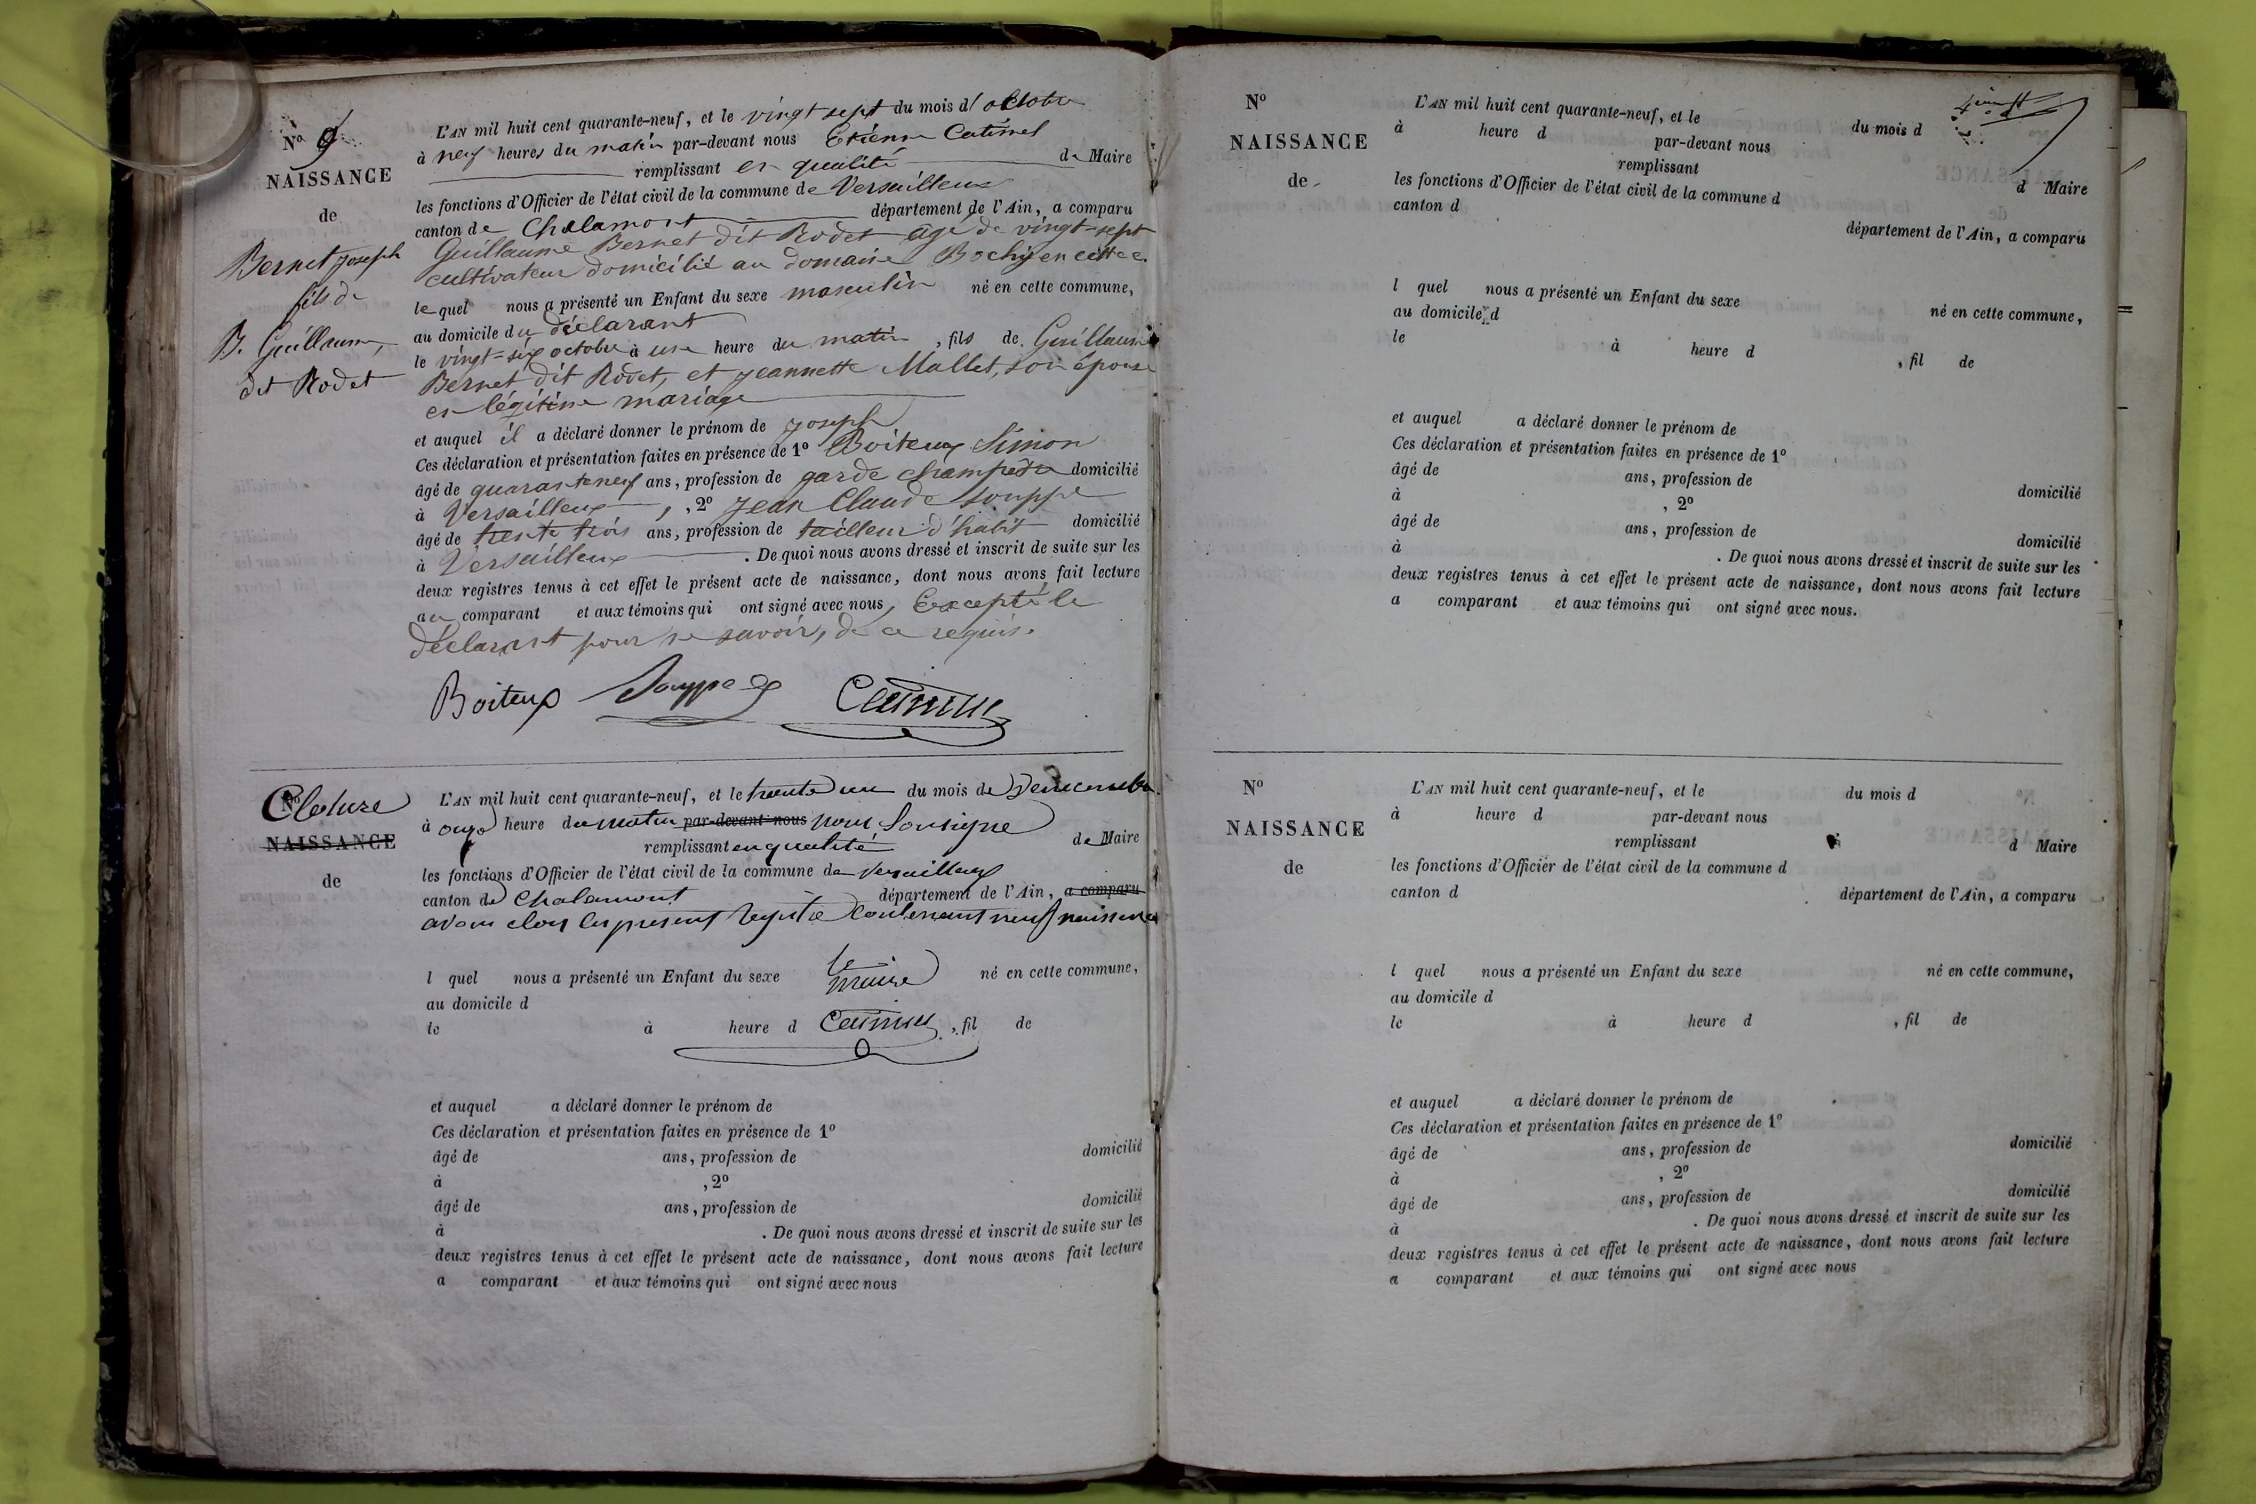 Nº 9
NAISSANCE
de
Bernet Joseph
fils de
B. Guillaume,
dit Rodet
L'AN mil huit cent quarante-neuf, et le vingt sept du mois d'octobre
à neuf heures du matin par-devant nous Etienne Catimel
remplissant en qualité de Maire
les fonctions d'Officier de l'état civil de la commune de Versailleux
canton de Chalamont département de l'Ain, a comparu
Guillaume Bernet dit Rodet âgé de vingt-sept
cultivateur domicilié au domaine Bochy en cette c.
lequel nous a présenté un Enfant du sexe masculin né en cette commune,
au domicile du déclarant
le vingt-six octobre à une heure du matin, fils de Guillaume
Bernet dit Rodet, et Jeannette Mallet, son épouse
en légitime mariage
et auquel il a déclaré donner le prénom de Joseph
Ces déclaration et présentation faites en présence de 1º Boiteux Simon
âgé de quarante neuf ans, profession de garde champêtre domicilié
à Versailleux, , 2º Jean Claude Souppe
âgé de trente trois ans, profession de tailleur d'habit domicilié
à Versailleux . De quoi nous avons dressé et inscrit de suite sur les
deux registres tenus à cet effet le présent acte de naissance, dont nous avons fait lecture
au comparant et aux témoins qui ont signé avec nous, Excepté le
déclarant pour ne savoir, de ce requis.
Boiteux Souppe
Cloture
Nº
NAISSANCE
de
L'AN mil huit cent quarante-neuf, et le trente un du mois de Décembre
à onze heure du matin par-devant nous nous Soussigné
remplissant en qualité de Maire
les fonctions d'Officier de l'état civil de la commune de Versailleux
canton de Chalamont département de l'Ain, a comparu
avons clos les present Registre contenant neuf naissances
l quel nous a présenté un Enfant du sexe le maire né en cette commune,
au domicile d
le à heure d , fil de
et auquel a déclaré donner le prénom de
Ces déclaration et présentation faites en présence de 1º
âgé de ans, profession de domicilié
à , 2º
âgé de ans, profession de domicilié
à . De quoi nous avons dressé et inscrit de suite sur les
deux registres tenus à cet effet le présent acte de naissance, dont nous avons fait lecture
a comparant et aux témoins qui ont signé avec nous
Nº
NAISSANCE
de
L'AN mil huit cent quarante-neuf, et le du mois d
à heure d par-devant nous
remplissant d Maire
les fonctions d'Officier de l'état civil de la commune d
canton d département de l'Ain, a comparu
l quel nous a présenté un Enfant du sexe né en cette commune,
au domicile d
le à heure d , fil de
et auquel a déclaré donner le prénom de
Ces déclaration et présentation faites en présence de 1º
âgé de ans, profession de domicilié
à , 2º
âgé de ans, profession de domicilié
à . De quoi nous avons dressé et inscrit de suite sur les
deux registres tenus à cet effet le présent acte de naissance, dont nous avons fait lecture
a comparant et aux témoins qui ont signé avec nous.
Nº
NAISSANCE
de
L'AN mil huit cent quarante-neuf, et le du mois d
à heure d par-devant nous
remplissant d Maire
les fonctions d'Officier de l'état civil de la commune d
canton d département de l'Ain, a comparu
l quel nous a présenté un Enfant du sexe né en cette commune,
au domicile d
le à heure d , fil de
et auquel a déclaré donner le prénom de
Ces déclaration et présentation faites en présence de 1º
âgé de ans, profession de domicilié
à , 2º
âgé de ans, profession de domicilié
à . De quoi nous avons dressé et inscrit de suite sur les
deux registres tenus à cet effet le présent acte de naissance, dont nous avons fait lecture
a comparant et aux témoins qui ont signé avec nous